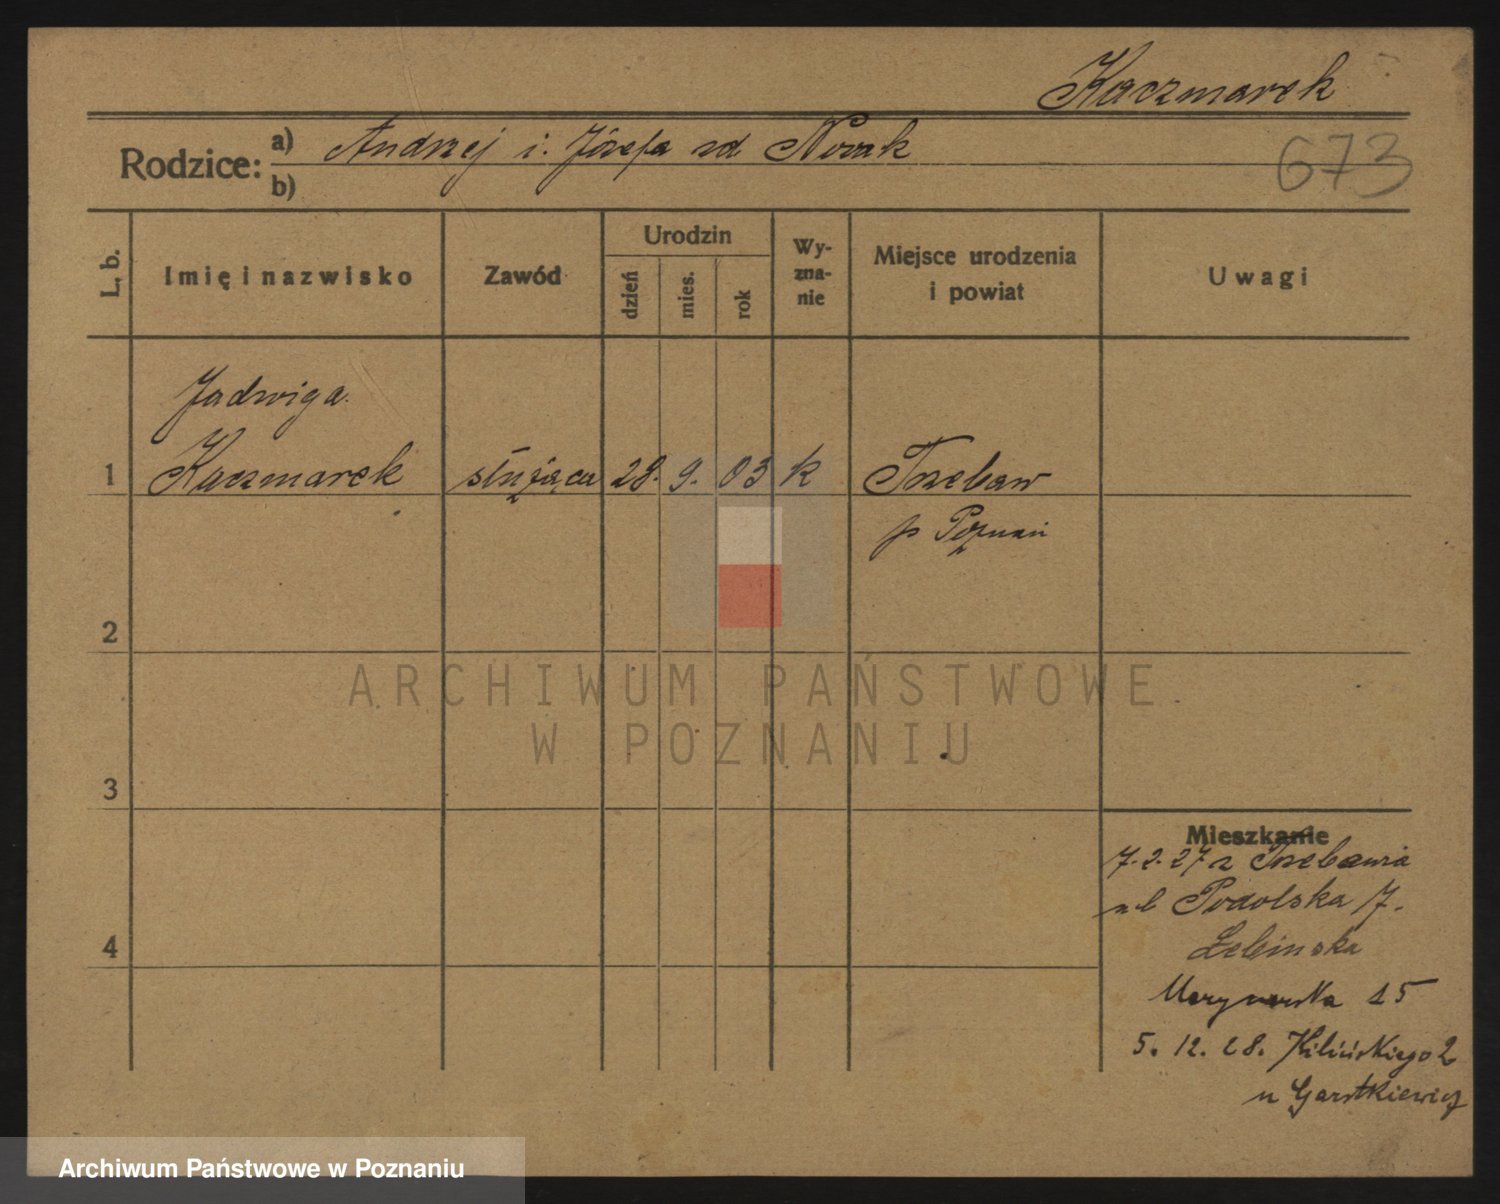 Kaczmarek
Rodzice: a) Andrzej i. Józefa zd Nowak
b)
673
L. b.
Imię i nazwisko
Zawód
Urodzin
dzień
mies.
rok
Wy-
zna-
nie
Miejsce urodzenia
i powiat
Uwagi
Jadwiga
1 Kaczmarek służąca 28. 9. 03 k Trzebaw
p Poznań
2
3
4
ARCHIWUM PAŃSTWOWE
W POZNANIU
Mieszkanie
7.2.27 z Trzebawia
Podolska 7.
Marynarska 15
5. 12. 28. Kilińskiego 2
u Garstkiewicz
Archiwum Państwowe w Poznaniu